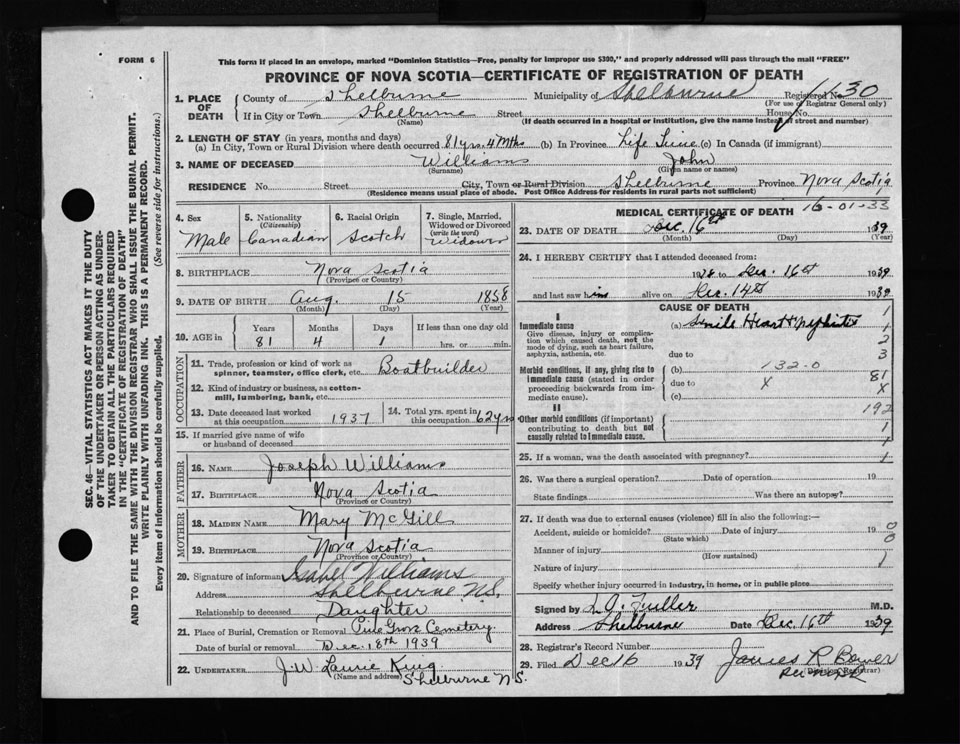 FORM 6
This form if placed in an envelope, marked "Dominion Statistics—Free, penalty for improper use $300," and properly addressed will pass through the mail "FREE"
PROVINCE OF NOVA SCOTIA—CERTIFICATE OF REGISTRATION OF DEATH
SEC. 46—VITAL STATISTICS ACT MAKES IT THE DUTY
OF THE UNDERTAKER OR PERSON ACTING AS UNDER-
TAKER TO OBTAIN ALL THE PARTICULARS REQUIRED
IN THE "CERTIFICATE OF REGISTRATION OF DEATH"
AND TO FILE THE SAME WITH THE DIVISION REGISTRAR WHO SHALL ISSUE THE BURIAL PERMIT.
WRITE PLAINLY WITH UNFADING INK. THIS IS A PERMANENT RECORD.
Every item of information should be carefully supplied. (See reverse side for instructions.)
1. PLACE OF DEATH County of Shelburne Municipality of Shelburne Registered No. 30
(For use of Registrar General only)
If in City or Town Shelburne Street House No.
(Name) (If death occurred in a hospital or institution, give the name instead of street and number)
2. LENGTH OF STAY (in years, months and days)
(a) In City, Town or Rural Division where death occurred 81 yrs. 4 Mths (b) In Province Life Time (c) In Canada (if immigrant)
3. NAME OF DECEASED Williams John
(Surname) (Given name or names)
RESIDENCE No. Street City, Town or Rural Division Shelburne Province Nova Scotia
(Residence means usual place of abode. Post Office Address for residents in rural parts not sufficient)
4. Sex Male
5. Nationality (Citizenship) Canadian
6. Racial Origin Scotch
7. Single, Married, Widowed or Divorced (write the word) Widower
8. BIRTHPLACE Nova Scotia
(Province or Country)
9. DATE OF BIRTH Aug. 15 1858
(Month) (Day) (Year)
10. AGE in Years Months Days If less than one day old
81 4 1 hrs. or min.
OCCUPATION
11. Trade, profession or kind of work as spinner, teamster, office clerk, etc. Boatbuilder
12. Kind of industry or business, as cotton-mill, lumbering, bank, etc.
13. Date deceased last worked at this occupation 1937
14. Total yrs. spent in this occupation 62 yrs
15. If married give name of wife or husband of deceased
FATHER
16. NAME Joseph Williams
17. BIRTHPLACE Nova Scotia
(Province or Country)
MOTHER
18. MAIDEN NAME Mary McGill
19. BIRTHPLACE Nova Scotia
(Province or Country)
20. Signature of informant Isabel Williams
Address Shelburne N.S.
Relationship to deceased Daughter
21. Place of Burial, Cremation or Removal Pine Grove Cemetery
Date of burial or removal Dec. 18th 1939
22. UNDERTAKER J. W. Laurie King
(Name and address) Shelburne N.S.
MEDICAL CERTIFICATE OF DEATH 16-01-33
23. DATE OF DEATH Dec. 16th 1939
(Month) (Day) (Year)
24. I HEREBY CERTIFY that I attended deceased from:
1938 to Dec. 16th 1939
and last saw him alive on Dec. 14th 1939
CAUSE OF DEATH 1
I
Immediate cause (a) Senile Heart & Nephritis 1
Give disease, injury or complication which caused death, not the mode of dying, such as heart failure, asphyxia, asthenia, etc. 2
due to 3
Morbid conditions, if any, giving rise to immediate cause (stated in order proceeding backwards from immediate cause). (b) 132-0
due to X 81
(c) X
II 192
Other morbid conditions (if important) contributing to death but not causally related to immediate cause. 1
1
25. If a woman, was the death associated with pregnancy? 1
26. Was there a surgical operation? Date of operation 19
State findings Was there an autopsy?
27. If death was due to external causes (violence) fill in also the following:—
Accident, suicide or homicide? Date of injury 19 0
(State which) 0
Manner of injury
(How sustained)
Nature of injury 1
Specify whether injury occurred in industry, in home, or in public place
Signed by L. O. Fuller M.D.
Address Shelburne Date Dec. 16th 1939
28. Registrar's Record Number
29. Filed Dec 16 1939 James R Bower
(Division Registrar)